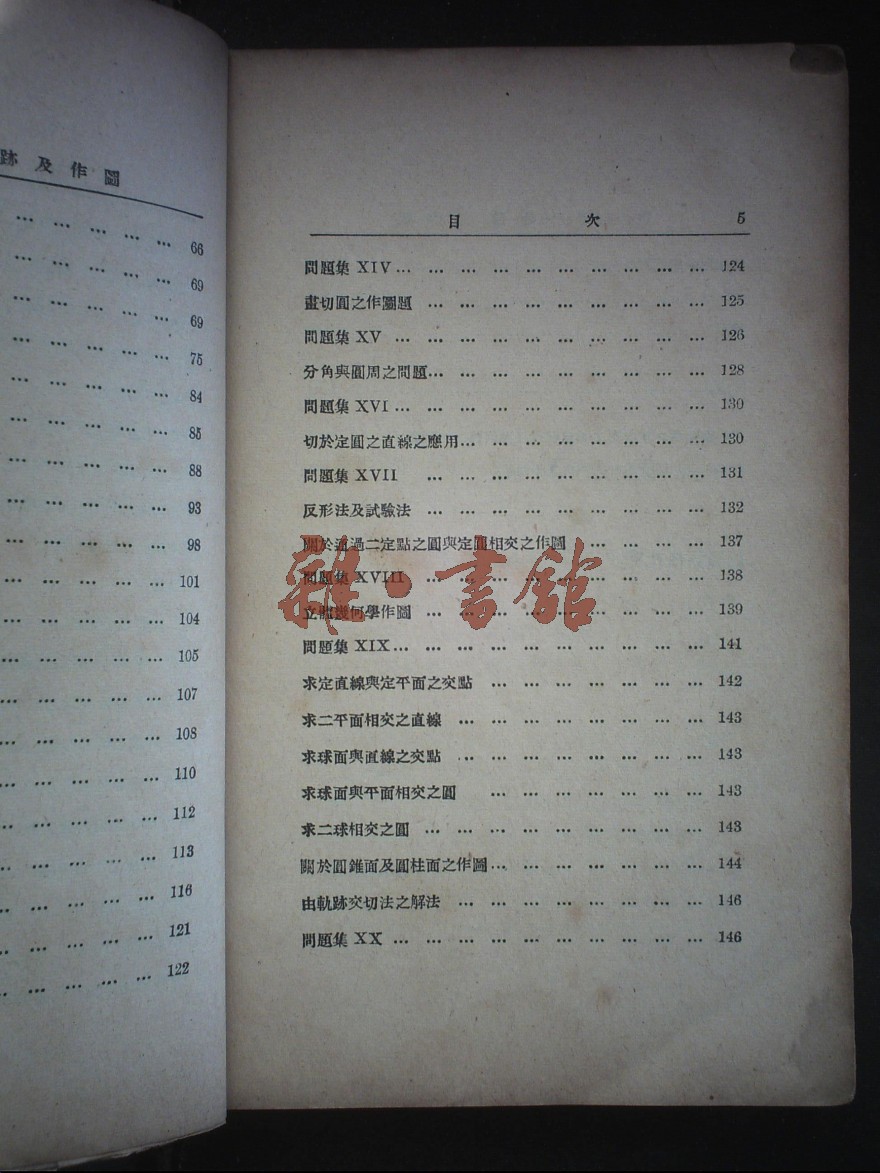 跡及作圖
... ... ... ... ... 66
... ... ... ... ... 69
... ... ... ... ... 69
... ... ... ... ... 75
... ... ... ... ... 84
... ... ... ... ... 85
... ... ... ... ... 88
... ... ... ... ... 93
... ... ... ... ... 98
... ... ... ... ... 101
... ... ... ... ... 104
... ... ... ... ... 105
... ... ... ... ... 107
... ... ... ... ... 108
... ... ... ... ... 110
... ... ... ... ... 112
... ... ... ... ... 113
... ... ... ... ... 116
... ... ... ... ... 121
... ... ... ... ... 122
目 次 5
問題集 XIV ... ... ... ... ... ... ... ... ... ... 124
畫切圓之作圖題 ... ... ... ... ... ... ... ... ... 125
問題集 XV ... ... ... ... ... ... ... ... ... ... 126
分角與圓周之問題 ... ... ... ... ... ... ... ... ... 128
問題集 XVI ... ... ... ... ... ... ... ... ... ... 130
切於定圓之直線之應用 ... ... ... ... ... ... ... ... 130
問題集 XVII ... ... ... ... ... ... ... ... ... 131
反形法及試驗法 ... ... ... ... ... ... ... ... ... 132
關於通過二定點之圓與定圓相交之作圖 ... ... ... ... 137
問題集 XVIII ... ... ... ... ... ... ... ... ... 138
立體幾何學作圖 ... ... ... ... ... ... ... ... ... 139
問題集 XIX ... ... ... ... ... ... ... ... ... ... 141
求定直線與定平面之交點 ... ... ... ... ... ... ... 142
求二平面相交之直線 ... ... ... ... ... ... ... ... 143
求球面與直線之交點 ... ... ... ... ... ... ... ... 143
求球面與平面相交之圓 ... ... ... ... ... ... ... 143
求二球相交之圓 ... ... ... ... ... ... ... ... ... 143
關於圓錐面及圓柱面之作圖 ... ... ... ... ... ... ... 144
由軌跡交切法之解法 ... ... ... ... ... ... ... ... 146
問題集 XX ... ... ... ... ... ... ... ... ... ... 146
雜·書館